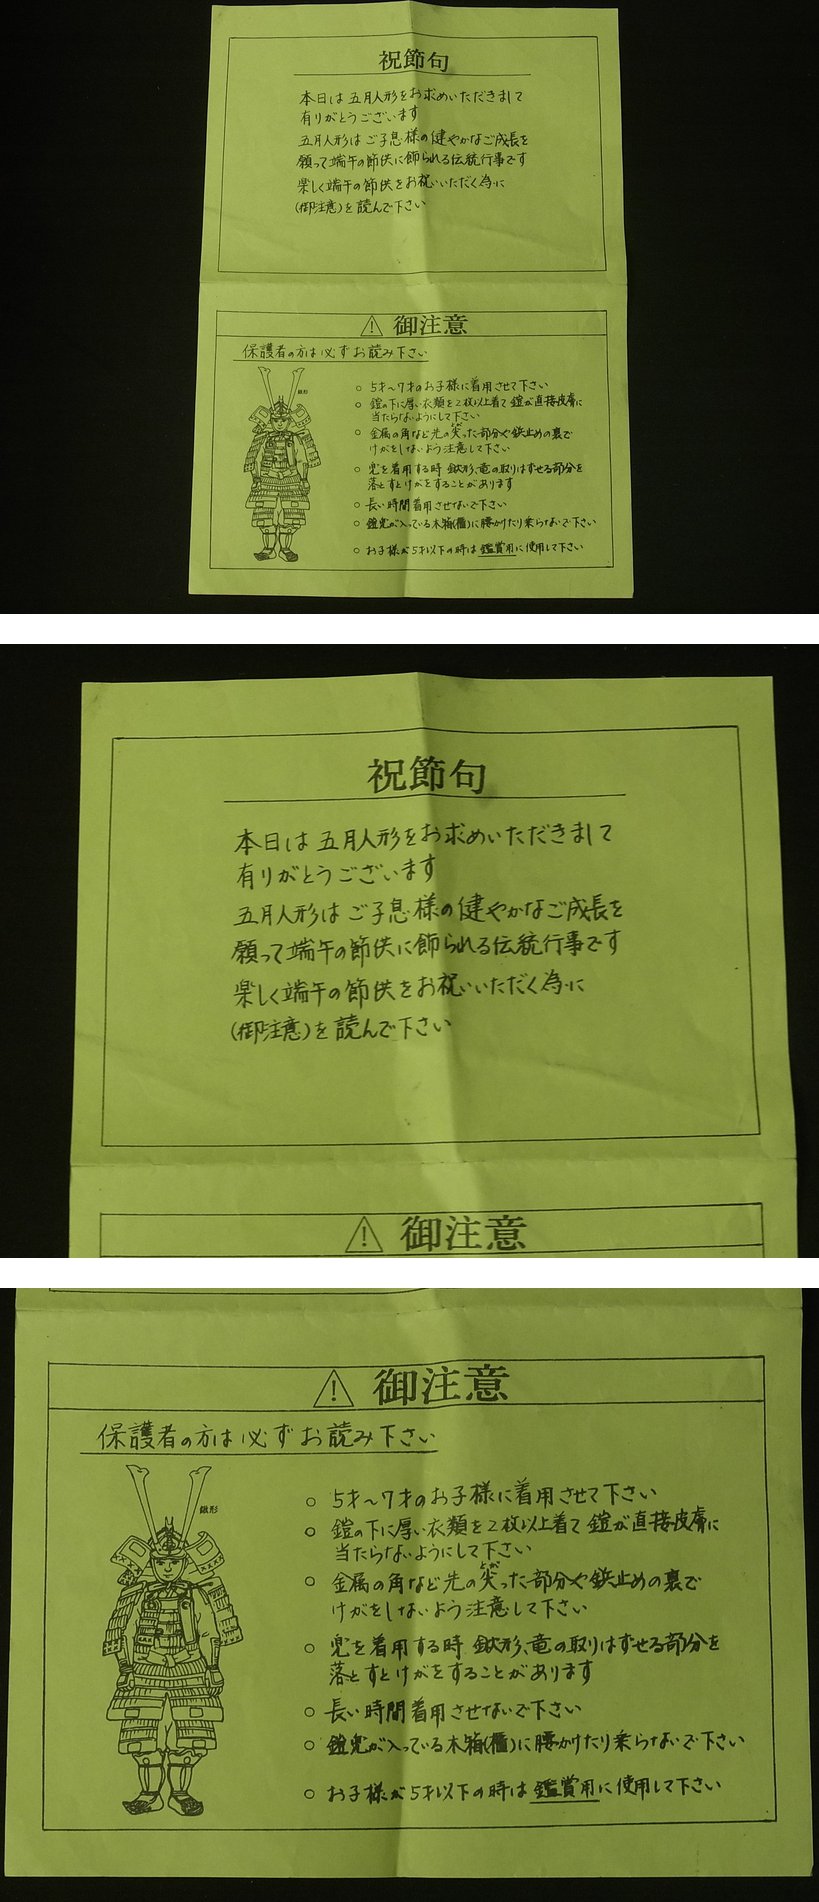 祝節句
本日は五月人形をお求めいただきまして
有りがとうございます
五月人形はご子息様の健やかなご成長を
願って端午の節供に飾られる伝統行事です
楽しく端午の節供をお祝いいただく為に
(御注意)を読んで下さい
御注意
保護者の方は必ずお読み下さい
鍬形
○ 5才～7才のお子様に着用させて下さい
○ 鎧の下に厚い衣類を2枚以上着て鎧が直接皮膚に
当たらないようにして下さい
とが
○ 金属の角など先の突った部分や鋲止めの裏で
けがをしないよう注意して下さい
○ 兜を着用する時 鍬形、竜の取りはずせる部分を
落とすとけがをすることがあります
○ 長い時間着用させないで下さい
○ 鎧兜が入っている木箱(櫃)に腰かけたり乗らないで下さい
○ お子様が5才以下の時は鑑賞用に使用して下さい
祝節句
本日は五月人形をお求めいただきまして
有りがとうございます
五月人形はご子息様の健やかなご成長を
願って端午の節供に飾られる伝統行事です
楽しく端午の節供をお祝いいただく為に
(御注意)を読んで下さい
御注意
御注意
保護者の方は必ずお読み下さい
鍬形
○ 5才～7才のお子様に着用させて下さい
○ 鎧の下に厚い衣類を2枚以上着て鎧が直接皮膚に
当たらないようにして下さい
とが
○ 金属の角など先の突った部分や鋲止めの裏で
けがをしないよう注意して下さい
○ 兜を着用する時 鍬形、竜の取りはずせる部分を
落とすとけがをすることがあります
○ 長い時間着用させないで下さい
○ 鎧兜が入っている木箱(櫃)に腰かけたり乗らないで下さい
○ お子様が5才以下の時は鑑賞用に使用して下さい